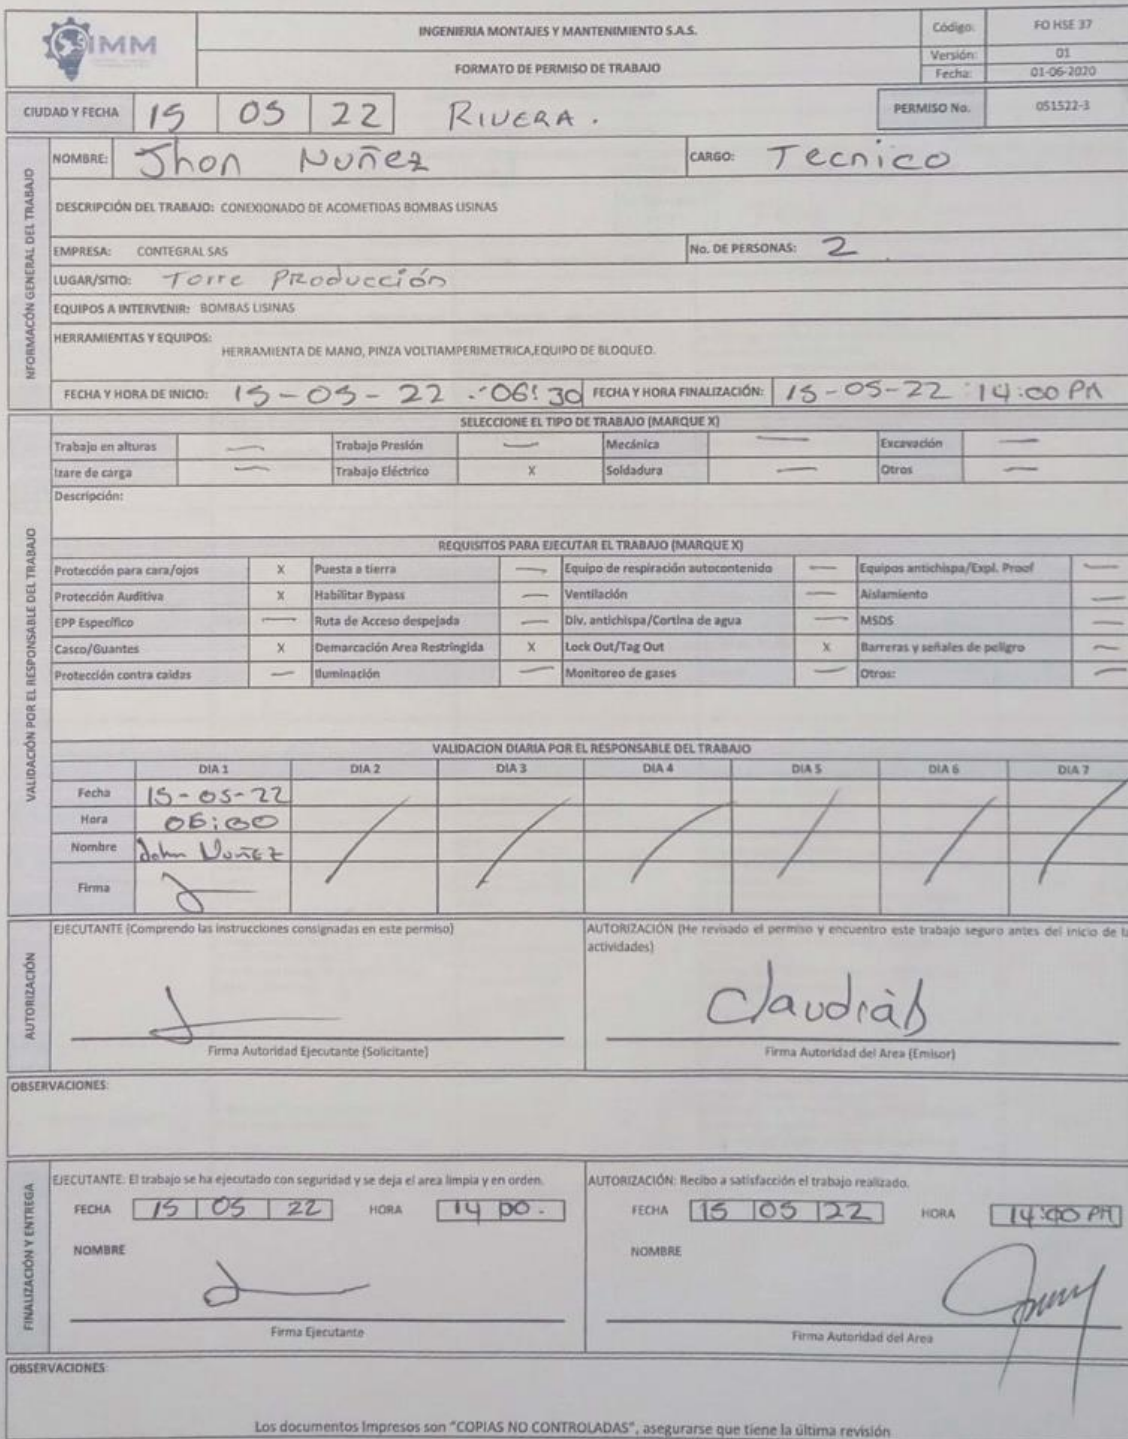 SIMM
INGENIERIA MONTAJES Y MANTENIMIENTO S.A.S.
Código: FO HSE 37
FORMATO DE PERMISO DE TRABAJO
Versión: 01
Fecha: 01-06-2020
CIUDAD Y FECHA 15 05 22 RIVERA.
PERMISO No. 051522-3
NFORMACÓN GENERAL DEL TRABAJO
NOMBRE: Jhon Nuñez CARGO: Tecnico
DESCRIPCIÓN DEL TRABAJO: CONEXIONADO DE ACOMETIDAS BOMBAS LISINAS
EMPRESA: CONTEGRAL SAS No. DE PERSONAS: 2
LUGAR/SITIO: Torre PRoducción
EQUIPOS A INTERVENIR: BOMBAS LISINAS
HERRAMIENTAS Y EQUIPOS:
HERRAMIENTA DE MANO, PINZA VOLTIAMPERIMETRICA,EQUIPO DE BLOQUEO.
FECHA Y HORA DE INICIO: 15-05-22 .-06:30 FECHA Y HORA FINALIZACIÓN: 15-05-22 14:00 PM
VALIDACIÓN POR EL RESPONSABLE DEL TRABAJO
SELECCIONE EL TIPO DE TRABAJO (MARQUE X)
Trabajo en alturas — Trabajo Presión — Mecánica — Excavación —
Izare de carga — Trabajo Eléctrico X Soldadura — Otros —
Descripción:
REQUISITOS PARA EJECUTAR EL TRABAJO (MARQUE X)
Protección para cara/ojos X Puesta a tierra — Equipo de respiración autocontenido — Equipos antichispa/Expl. Proof —
Protección Auditiva X Habilitar Bypass — Ventilación — Aislamiento —
EPP Específico — Ruta de Acceso despejada — Div. antichispa/Cortina de agua — MSDS —
Casco/Guantes X Demarcación Area Restringida X Lock Out/Tag Out X Barreras y señales de peligro —
Protección contra caidas — Iluminación — Monitoreo de gases — Otros: —
VALIDACION DIARIA POR EL RESPONSABLE DEL TRABAJO
DIA 1 DIA 2 DIA 3 DIA 4 DIA 5 DIA 6 DIA 7
Fecha 15-05-22
Hora 06:00
Nombre John Nuñez
Firma
AUTORIZACIÓN
EJECUTANTE (Comprendo las instrucciones consignadas en este permiso)
AUTORIZACIÓN (He revisado el permiso y encuentro este trabajo seguro antes del inicio de la
actividades)
Claudia
Firma Autoridad Ejecutante (Solicitante)
Firma Autoridad del Area (Emisor)
OBSERVACIONES:
FINALIZACIÓN Y ENTREGA
EJECUTANTE: El trabajo se ha ejecutado con seguridad y se deja el area limpia y en orden.
FECHA 15 05 22 HORA 14 00.
NOMBRE
Firma Ejecutante
AUTORIZACIÓN: Recibo a satisfacción el trabajo realizado.
FECHA 15 05 22 HORA 14:00 PM
NOMBRE
Firma Autoridad del Area
OBSERVACIONES:
Los documentos Impresos son "COPIAS NO CONTROLADAS", asegurarse que tiene la última revisión